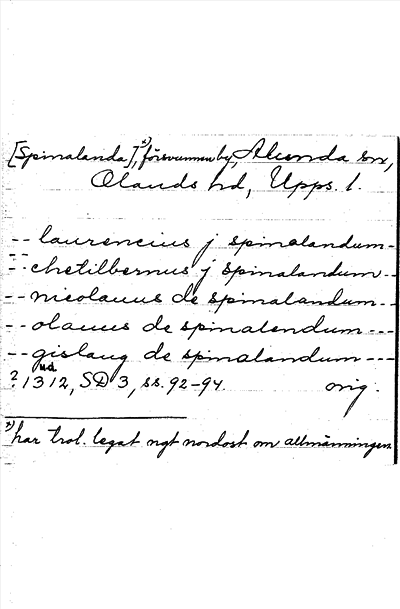 [Spinalanda],*) försvunnen by, Alunda sn,
Olands hd, Upps. l.
-- laurencius j spinalandum -
-- chetilbernus j spinalandum --
-- nicolaus de spinalandum --
-- olauus de spinalendum ---
-- gislaug de spinalandum ---
? u.d. 1312, SD 3, ss. 92-94. orig.
*) har trol. legat ngt nordost om allmänningen.